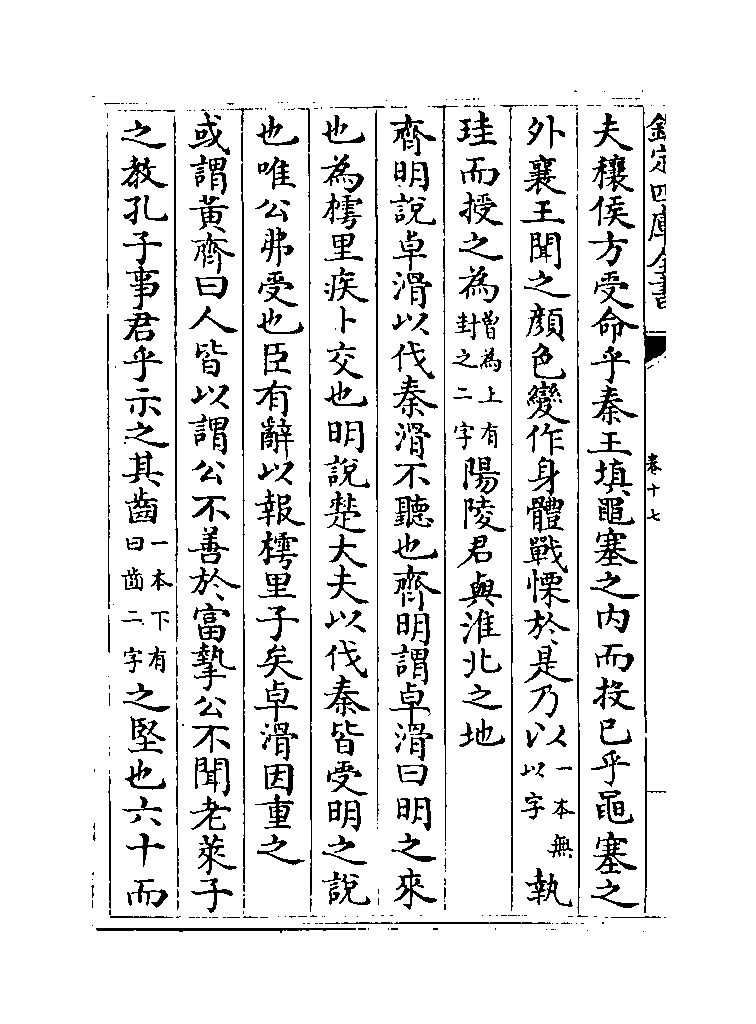 欽定四庫全書
卷十七
夫穰侯方受命乎秦王填黽塞之内而投已乎黽塞之
外襄王聞之顔色變作身體戰慄於是乃以一本無以字執
珪而授之為曽為上有封之二字陽陵君與淮北之地
齊明說卓滑以伐秦滑不聽也齊明謂卓滑曰明之來
也為樗里疾卜交也明說楚大夫以伐秦皆受明之說
也唯公弗受也臣有辭以報樗里子矣卓滑因重之
或謂黃齊曰人皆以謂公不善於富摯公不聞老萊子
之教孔子事君乎示之其齒一本下有曰齒二字之堅也六十而